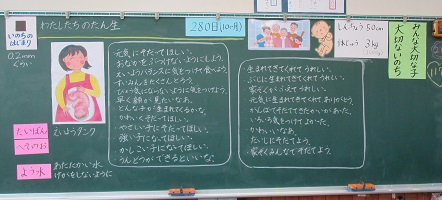 わたしたちのたん生
280日(10ヶ月)
しんちょう50cm
体じゅう3kg
みんな大切な子
大切ないのち
いのちのはじまり
0.2mm
くらい
元気にそだってほしい。
おなかをぶつけないようにしよう。
えいようバランスに気をつけて食べよう。
すいみんをたくさんとろう。
びょう気にならないように気をつけよう。
早く顔が見たいなあ。
どんな子が生まれてくるかな。
かわいくそだってほしい。
やさしい子にそだってほしい。
強い子になってほしい。
かしこい子になってほしい。
うんどうができるといいな。
生まれてきてくれてうれしい。
ぶじに生まれてきてくれてうれしい。
家ぞくがふえてうれしい。
元気に生まれてきてくれてありがとう。
がんばってそだててきたかいがあった。
いろいろ気をつけてよかった。
かわいいなあ。
だいじにそだてよう。
家ぞくみんなでそだてよう。
たいばん
えいようタンク
へそのお
よう水
あたたかい水
けがをしないように